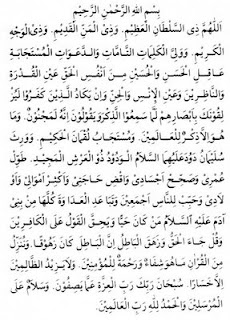 بِسْمِ اللهِ الرَّحْمٰنِ الرَّحِيْمِ
اَللّٰهُمَّ ذِى السُّلْطَانِ الْعَظِيْمِ. وَذِى الْمَنِّ الْقَدِيْمِ. وَذِى الْوَجْهِ
الْكَرِيْمِ. وَوَلِيِّ الْكَلِمَاتِ التَّامَّاتِ وَالدَّعَوَاتِ الْمُسْتَجَابَةِ
عَاقِلِ الْحَسَنِ وَالْحُسَيْنِ مِنْ اَنْفُسِ الْحَقِّ عَيْنِ الْقُدْرَةِ
وَالنَّاظِرِيْنَ وَعَيْنِ الْاِنْسِ وَالْجِنِّ وَاِنْ يَكَادُ الَّذِيْنَ كَفَرُوْا لَيُزْ
لِقُوْنَكَ بِاَبْصَارِهِمْ لَمَّا سَمِعُوا الذِّكْرَ وَيَقُوْلُوْنَ اِنَّهُ لَمَجْنُوْنٌ. وَمَا
هُوَ اِلَّا ذِكْرٌ لِلْعَالَمِيْنَ. وَمُسْتَجَابُ لُقْمَانَ الْحَكِيْمِ. وَوَرِثَ
سُلَيْمَانُ دَاوُدَ عَلَيْهِمَا السَّلَامُ الْوَدُوْدُ ذُو الْعَرْشِ الْمَجِيْدِ. طَوِّلْ
عُمْرِىْ وَصَحِّحْ اَجْسَادِىْ وَاقْضِ حَاجَتِىْ وَاَكْثِرْ اَمْوَالِىْ وَاَوْ
لَادِىْ وَحَبِّبْ لِلنَّاسِ اَجْمَعِيْنَ وَتَبَاعَدِ الْعَدَاوَةَ كُلَّهَا مِنْ بَنِىْ
اٰدَمَ عَلَيْهِ السَّلَامُ مَنْ كَانَ حَيًّا وَيَحِقَّ الْقَوْلُ عَلَى الْكَافِرِيْنَ
وَقُلْ جَاءَ الْحَقُّ وَزَهَقَ الْبَاطِلُ اِنَّ الْبَاطِلَ كَانَ زَهُوْقًا. وَنُنَزِّلُ
مِنَ الْقُرْاٰنِ مَا هُوَ شِفَاءٌ وَرَحْمَةٌ لِلْمُؤْمِنِيْنَ. وَلَا يَزِيْدُ الظَّالِمِيْنَ
اِلَّا خَسَارًا. سُبْحَانَ رَبِّكَ رَبِّ الْعِزَّةِ عَمَّا يَصِفُوْنَ. وَسَلَامٌ عَلَى
الْمُرْسَلِيْنَ وَالْحَمْدُ لِلّٰهِ رَبِّ الْعَالَمِيْنَ.